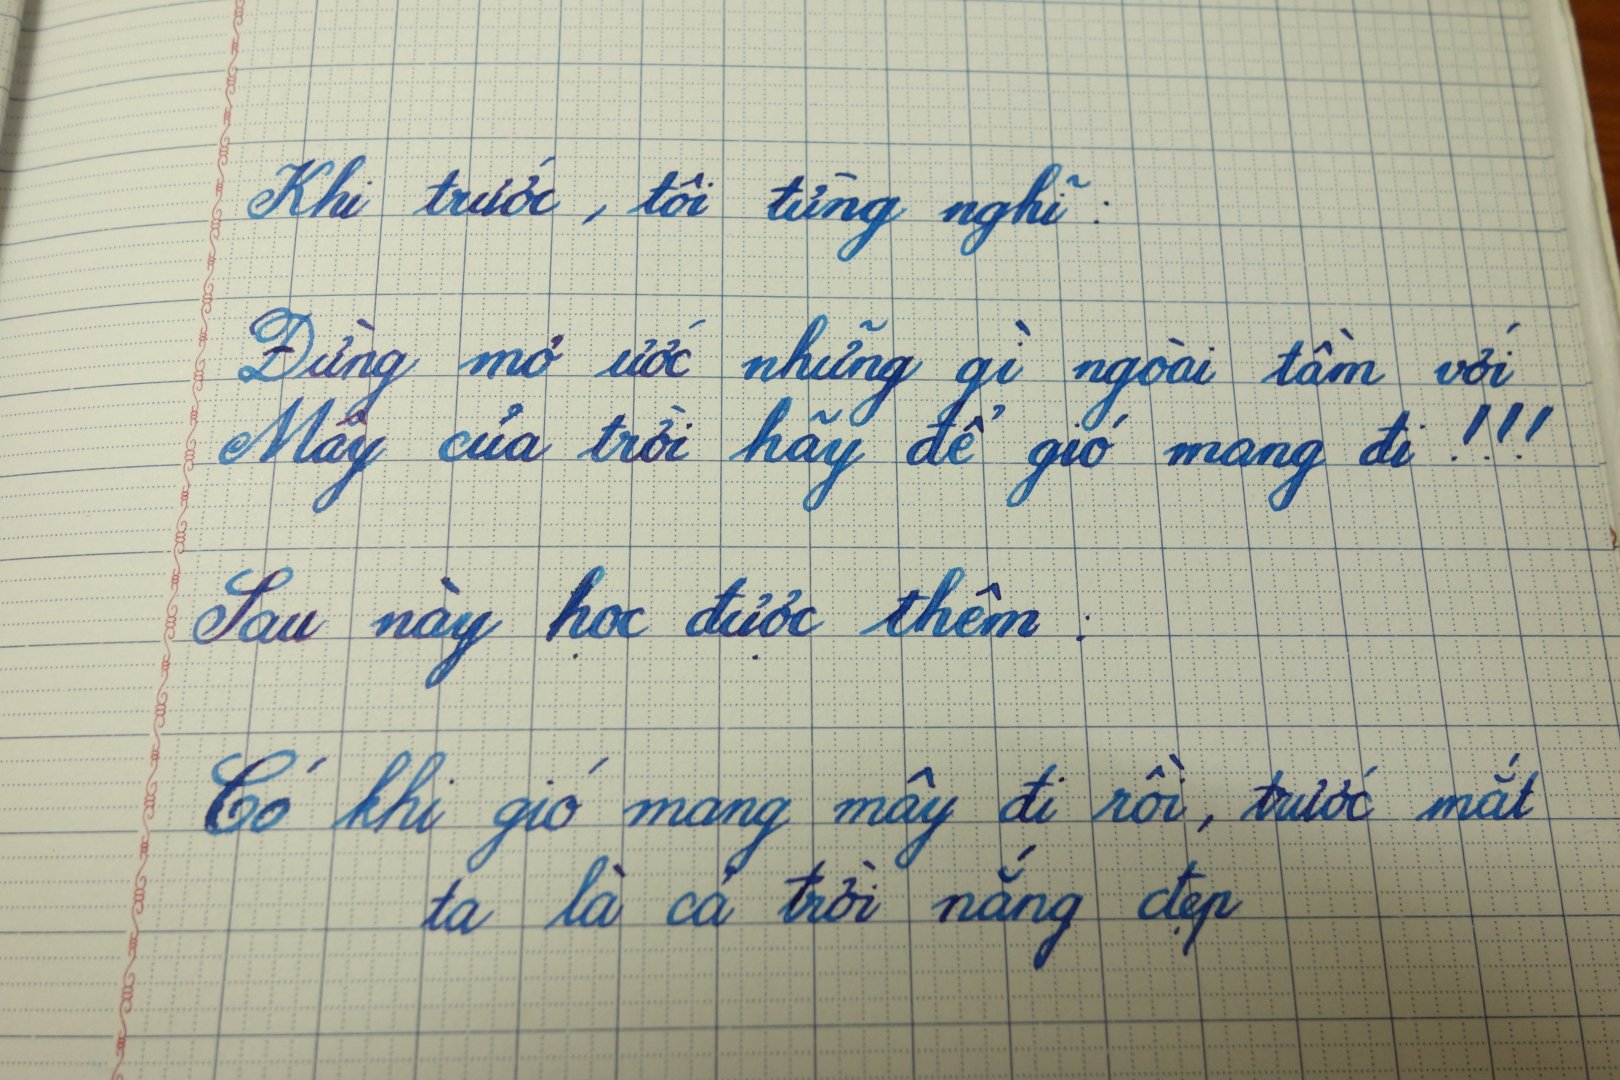 Khi trước, tôi từng nghĩ:
Đừng mơ ước những gì ngoài tầm với
Mây của trời hãy để gió mang đi!!!
Sau này học được thêm:
Có khi gió mang mây đi rồi, trước mắt
ta là cả trời nắng đẹp